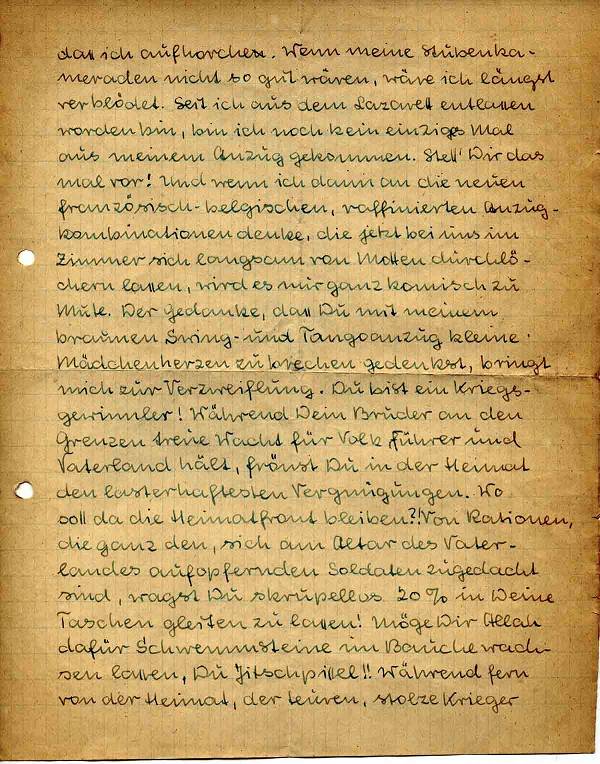 dass ich aufhorchen. Wenn meine Stubenka-
meraden nicht so gut wären, wäre ich längst
verblödet. Seit ich aus dem Lazarett entlassen
worden bin, bin ich noch kein einziges Mal
aus meinem Anzug gekommen. Stell' Dir das
mal vor! Und wenn ich dann an die neuen
französisch-belgischen, raffinierten Anzug-
kombinationen denke, die jetzt bei uns im
Zimmer sich langsam von Motten durchlö-
chern lassen, wird es mir ganz komisch zu
Mute. Der Gedanke, dass Du mit meinem
braunen Swing- und Tangoanzug kleine
Mädchenherzen zu brechen gedenkst, bringt
mich zur Verzweiflung. Du bist ein Kriegs-
gewinnler! Während Dein Bruder an den
Grenzen treue Wacht für Volk, Führer und
Vaterland hält, frönst Du in der Heimat
den lasterhaftesten Vergnügungen. Wo
soll da die Heimatfront bleiben?! Von Rationen,
die ganz den, sich am Altar des Vater-
landes aufopfernden Soldaten zugedacht
sind, wagst Du skrupellos 20% in Deine
Taschen gleiten zu lassen! Möge Dir Allah
dafür Schwemmsteine im Bauche wach-
sen lassen, Du Jitschpissel!! Während fern
von der Heimat, der teuren, stolze Krieger